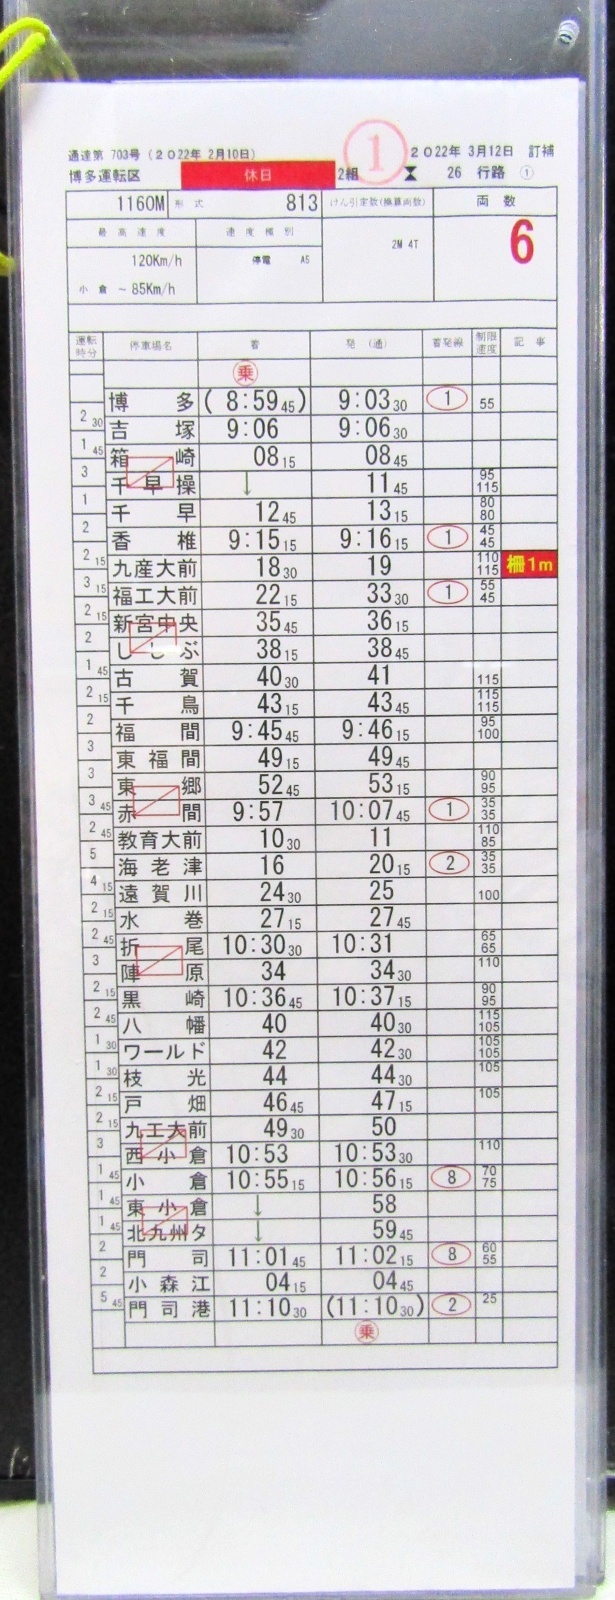 1
通達第 703号(2022年 2月10日) 2022年 3月12日 訂補
博多運転区 休日 2組 26 行路 ①
1160M 形式 813 けん引定数(換算両数) 両数
最高速度 速度種別 2M 4T 6
120Km/h 停電 A5
小倉 ~ 85Km/h
運転時分 停車場名 着 発(通) 着発線 制限速度 記事
乗
博多 (8:59 45) 9:03 30 1 55
2 30
吉塚 9:06 9:06 30
1 45
箱崎 08 15 08 45
3
千早操 ↓ 11 45 95 115
1
千早 12 45 13 15 80 80
2
香椎 9:15 15 9:16 15 1 45 45
2 15
九産大前 18 30 19 110 115 1m
3 15
福工大前 22 15 33 30 1 55 45
2 15
新宮中央 35 45 36 15
2
ししぶ 38 15 38 45
1 45
古賀 40 30 41 115
2 15
千鳥 43 15 43 45 115 115
2
福間 9:45 45 9:46 15 95 100
3
東福間 49 15 49 45
3
東郷 52 45 53 15 90 95
3 45
赤間 9:57 10:07 45 1 35 35
2 45
教育大前 10 30 11 110 85
5
海老津 16 20 15 2 35 35
4 15
遠賀川 24 30 25 100
2 15
水巻 27 15 27 45
2 45
折尾 10:30 30 10:31 65 65
3
陣原 34 34 30 110
2 15
黒崎 10:36 45 10:37 15 90 95
2 45
八幡 40 40 30 115 105
1 30
ワールド 42 42 30 105 105
1 30
枝光 44 44 30 105
2 15
戸畑 46 45 47 15 105
2 15
九工大前 49 30 50
3
西小倉 10:53 10:53 30 110
1 45
小倉 10:55 15 10:56 15 8 70 75
1 45
東小倉 ↓ 58
1 45
北九州タ ↓ 59 45
2
門司 11:01 45 11:02 15 8 60 55
2
小森江 04 15 04 45
5 45
門司港 11:10 30 (11:10 30) 2 25
乗